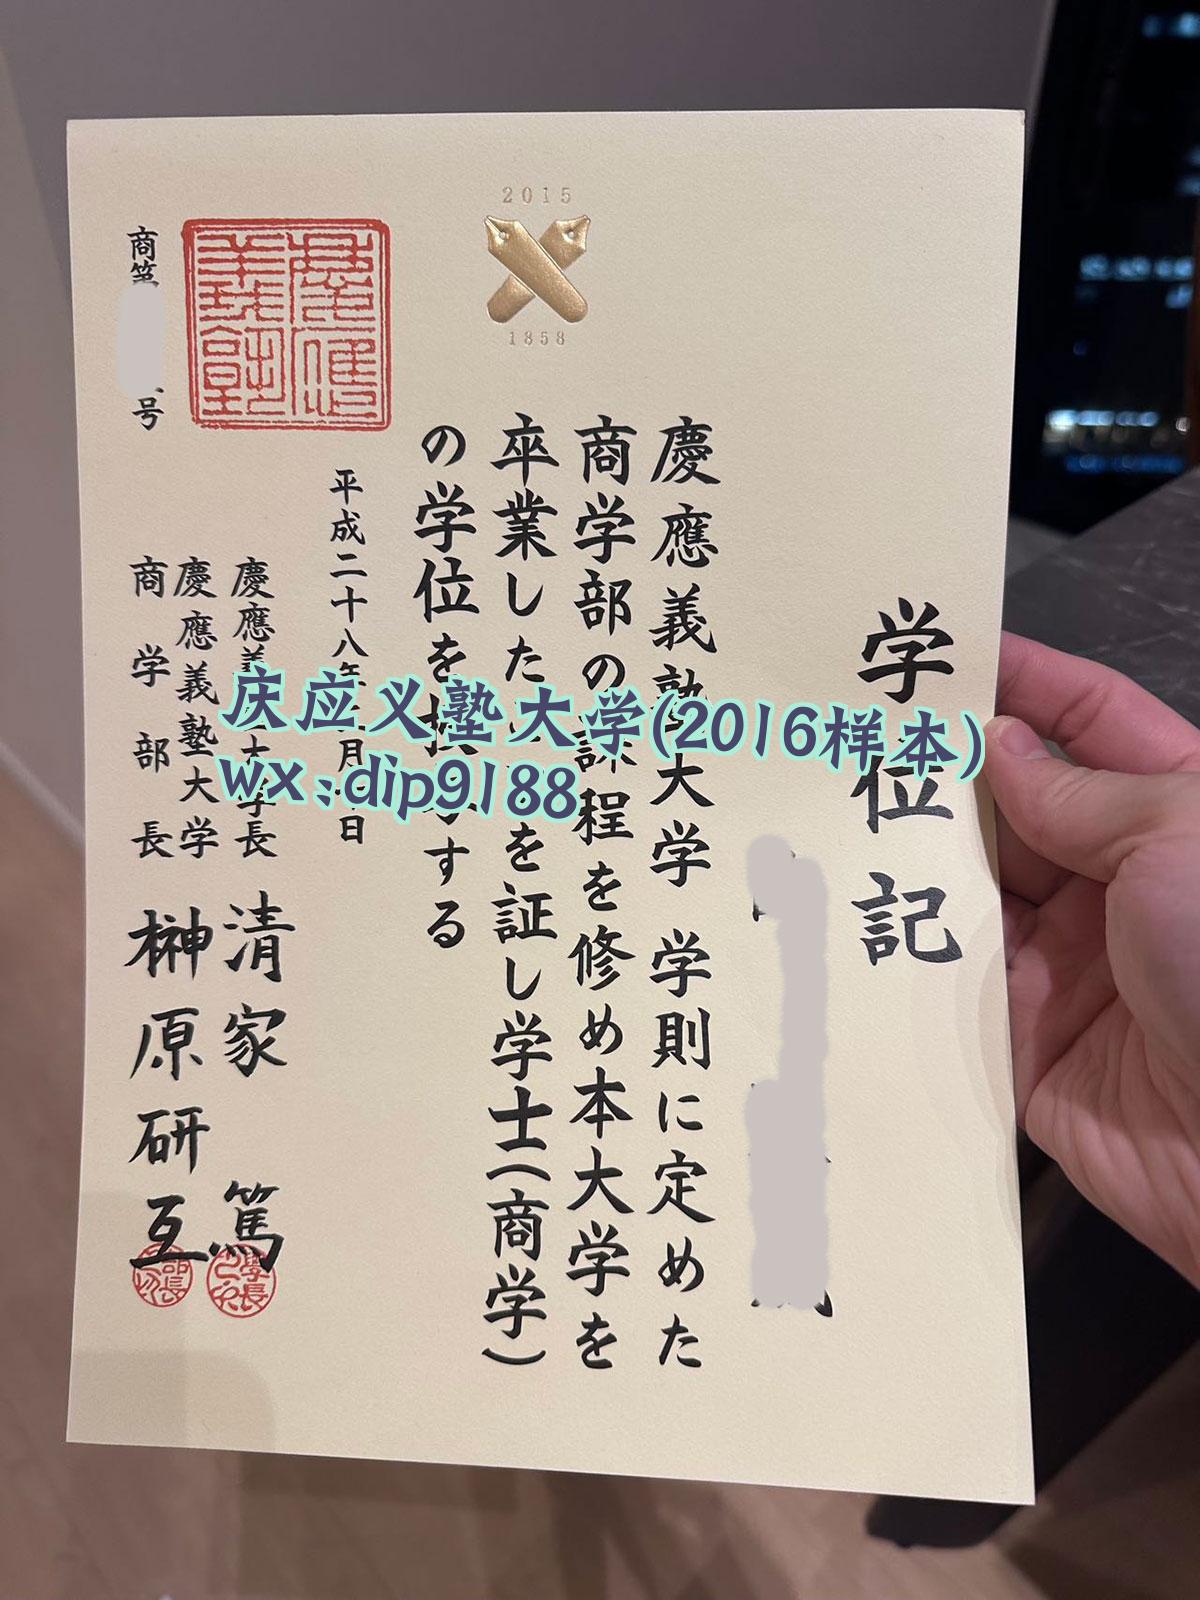 学位記
慶應義塾大学学則に定めた
商学部の課程を修め本大学を
卒業したを証し学士(商学)
の学位をする
平成二十八年月日
慶應義大学長 清家篤
慶應義塾大学
商学部長 榊原研互
商第
号
2015
1858
慶應義塾
庆应义塾大学(2016样本)
wx:dip9188